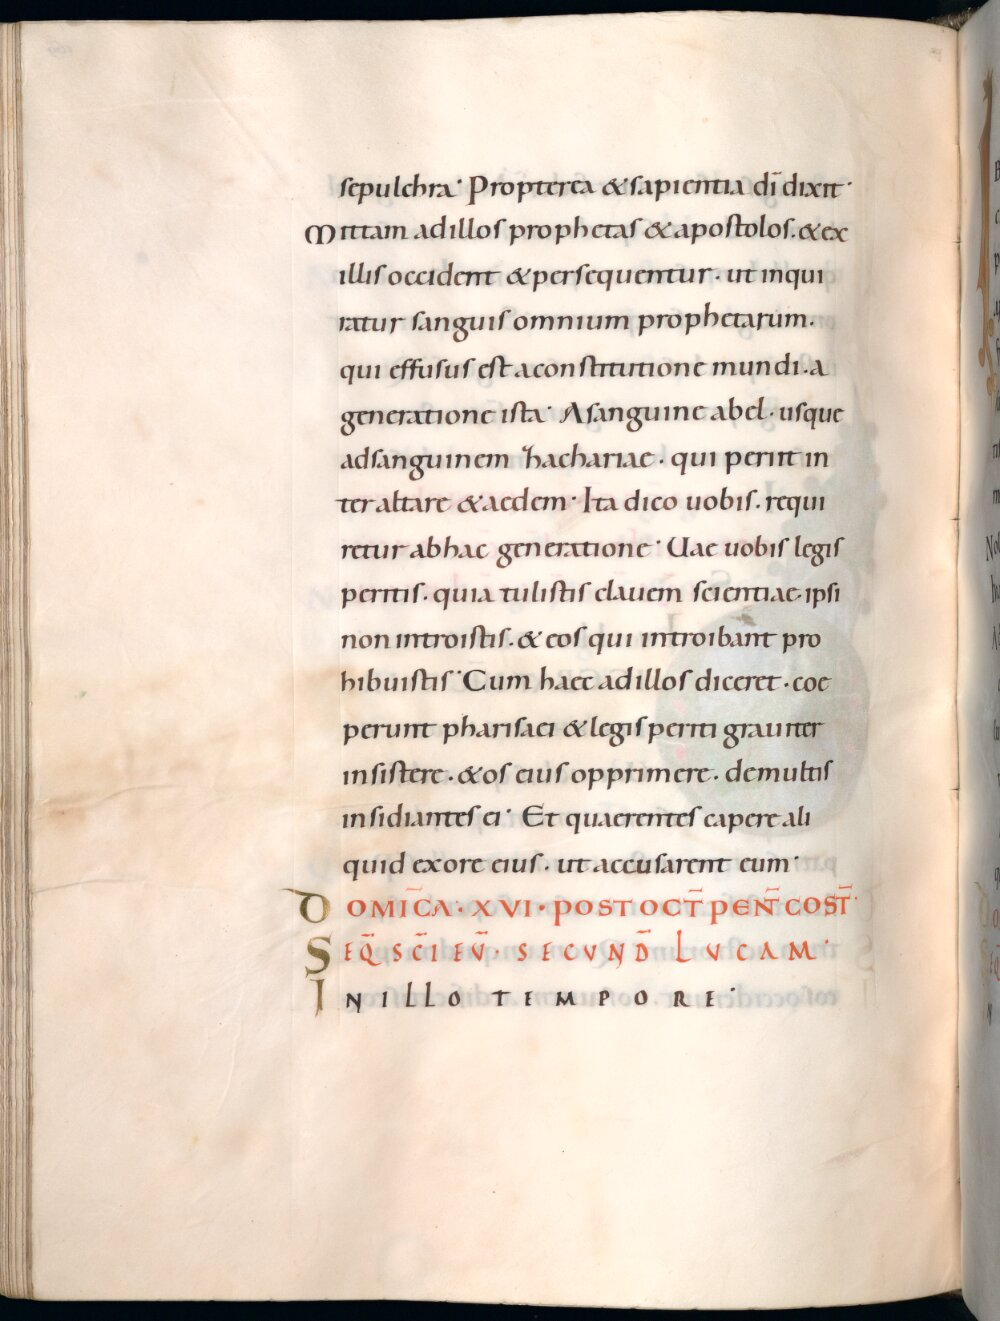 sepulchra· Propterea & sapientia dī dixit·
Mittam ad illos prophetas & apostolos. & ex
illis occident & persequentur· ut inqui
ratur sanguis omnium prophetarum·
qui effusus est a constitutione mundi· a
generatione ista· A sanguine abel· usque
ad sanguinem hachariae· qui periit in
ter altare & aedem· Ita dico uobis. requi
retur ab hac generatione· Uae uobis legis
peritis· quia tulistis clauem scientiae· ipsi
non introistis· & eos qui introibant pro
hibuistis· Cum haec ad illos diceret· coe
perunt pharisaei & legis periti grauiter
insistere· & os eius opprimere· de multis
insidiantes ei· Et quaerentes capere ali
quid ex ore eius· ut accusarent eum·
DOMIC̄A· XVI· POST OCT̄ PEN̄TCOST̄·
SEQ̄ SC̄I EŪ· SECVND̄ LVCAM·
IN ILLO TEMPORE·